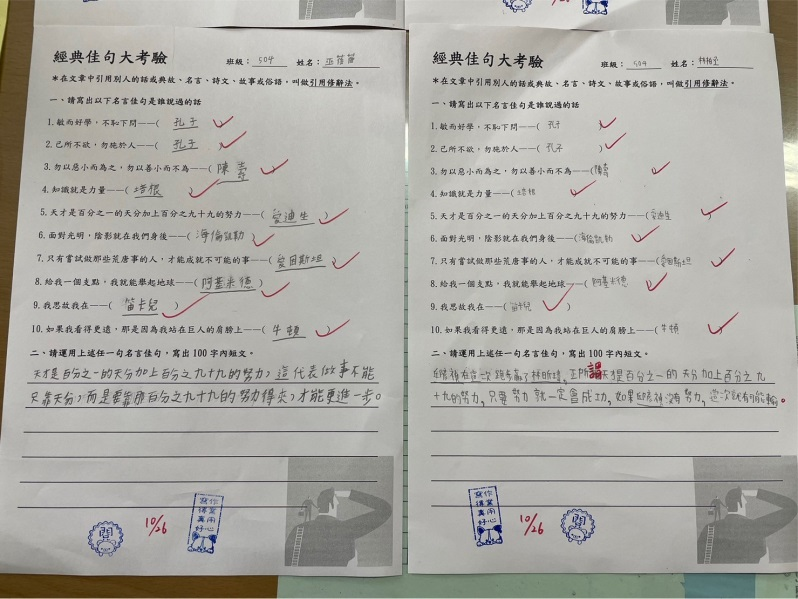 經典佳句大考驗
班級：504 姓名：巫
＊在文章中引用別人的話或典故、名言、詩文、故事或俗語，叫做引用修辭法。
一、請寫出以下名言佳句是誰說過的話
1.敏而好學，不恥下問——（孔子）
2.己所不欲，勿施於人——（孔子）
3.勿以惡小而為之，勿以善小而不為——（陳壽）
4.知識就是力量——（培根）
5.天才是百分之一的天分加上百分之九十九的努力——（愛迪生）
6.面對光明，陰影就在我們身後——（海倫凱勒）
7.只有嘗試做那些荒唐事的人，才能成就不可能的事——（愛因斯坦）
8.給我一個支點，我就能舉起地球——（阿基米德）
9.我思故我在——（笛卡兒）
10.如果我看得更遠，那是因為我站在巨人的肩膀上——（牛頓）
二、請運用上述任一句名言佳句，寫出100字內短文。
天才是百分之一的天分加上百分之九十九的努力，這代表做事不能
只靠天分，而是要靠那百分之九十九的努力得來，才能更進一步。
閱
10/26
作業用心
寫得真好
經典佳句大考驗
班級：504 姓名：林
＊在文章中引用別人的話或典故、名言、詩文、故事或俗語，叫做引用修辭法。
一、請寫出以下名言佳句是誰說過的話
1.敏而好學，不恥下問——（孔子）
2.己所不欲，勿施於人——（孔子）
3.勿以惡小而為之，勿以善小而不為——（陳壽）
4.知識就是力量——（培根）
5.天才是百分之一的天分加上百分之九十九的努力——（愛迪生）
6.面對光明，陰影就在我們身後——（海倫凱勒）
7.只有嘗試做那些荒唐事的人，才能成就不可能的事——（愛因斯坦）
8.給我一個支點，我就能舉起地球——（阿基米德）
9.我思故我在——（笛卡兒）
10.如果我看得更遠，那是因為我站在巨人的肩膀上——（牛頓）
二、請運用上述任一句名言佳句，寫出100字內短文。
在這次跑步贏了林昕，正所謂天才是百分之一的天分加上百分之九
十九的努力，只要努力就一定會成功，如果沒有努力，這次就有可能輸。
作業用心
寫得真好
10/26
閱